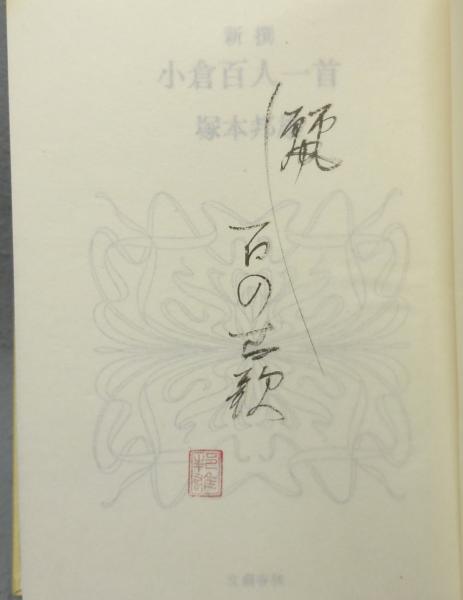 新撰
小倉百人一首
塚本邦雄
百の
邦雄
文藝春秋